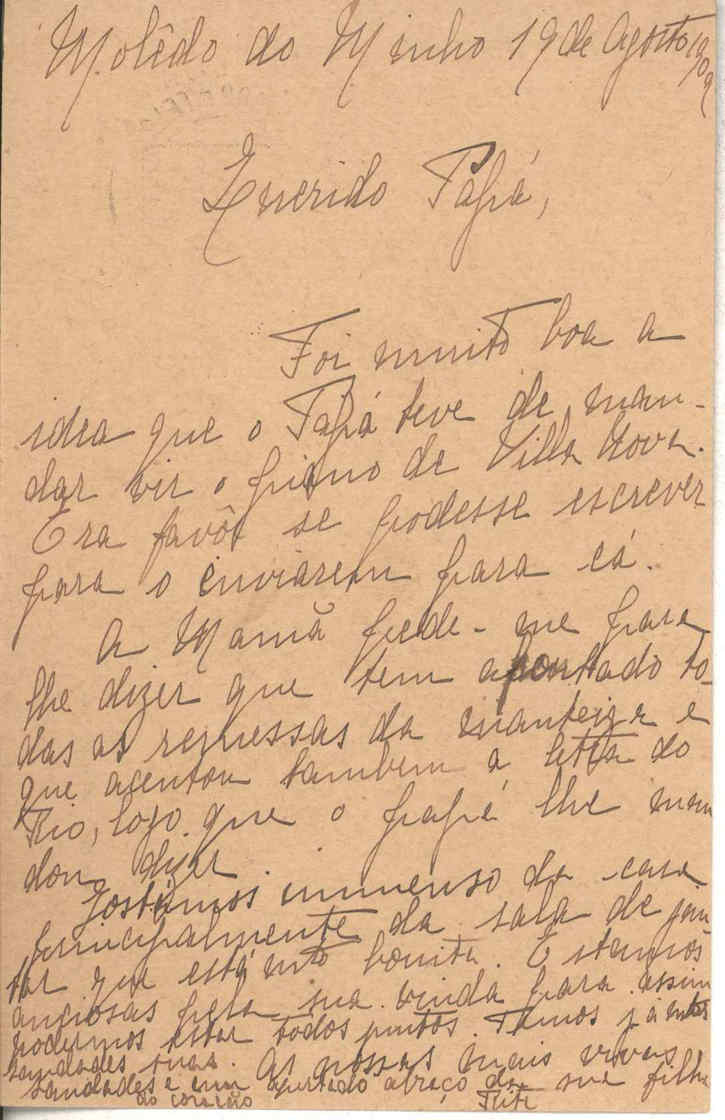 Molêdo do Minho 19 de Agosto 1909
Querido Papá,
Foi muito boa a
idea que o Papá teve de man-
dar vir o piano de Villa Nova.
Era favôr se podesse escrever
para o enviarem para cá.
A Mamã pede-me para
lhe dizer que tem apontado to-
das as remessas da manteiga e
que acentou tambem a letra do
Rio, logo que o papá lhe man
dou dizer.
Gostámos immenso da casa
principalmente da sala de jan
tar que está mto bonita. Estamos
anciosas pela sua vinda para assim
podermos estar todos juntos. Temos já mtas
saudades suas. As nossas mais vivas
saudades e um apertado abraço da sua filha
ao coração